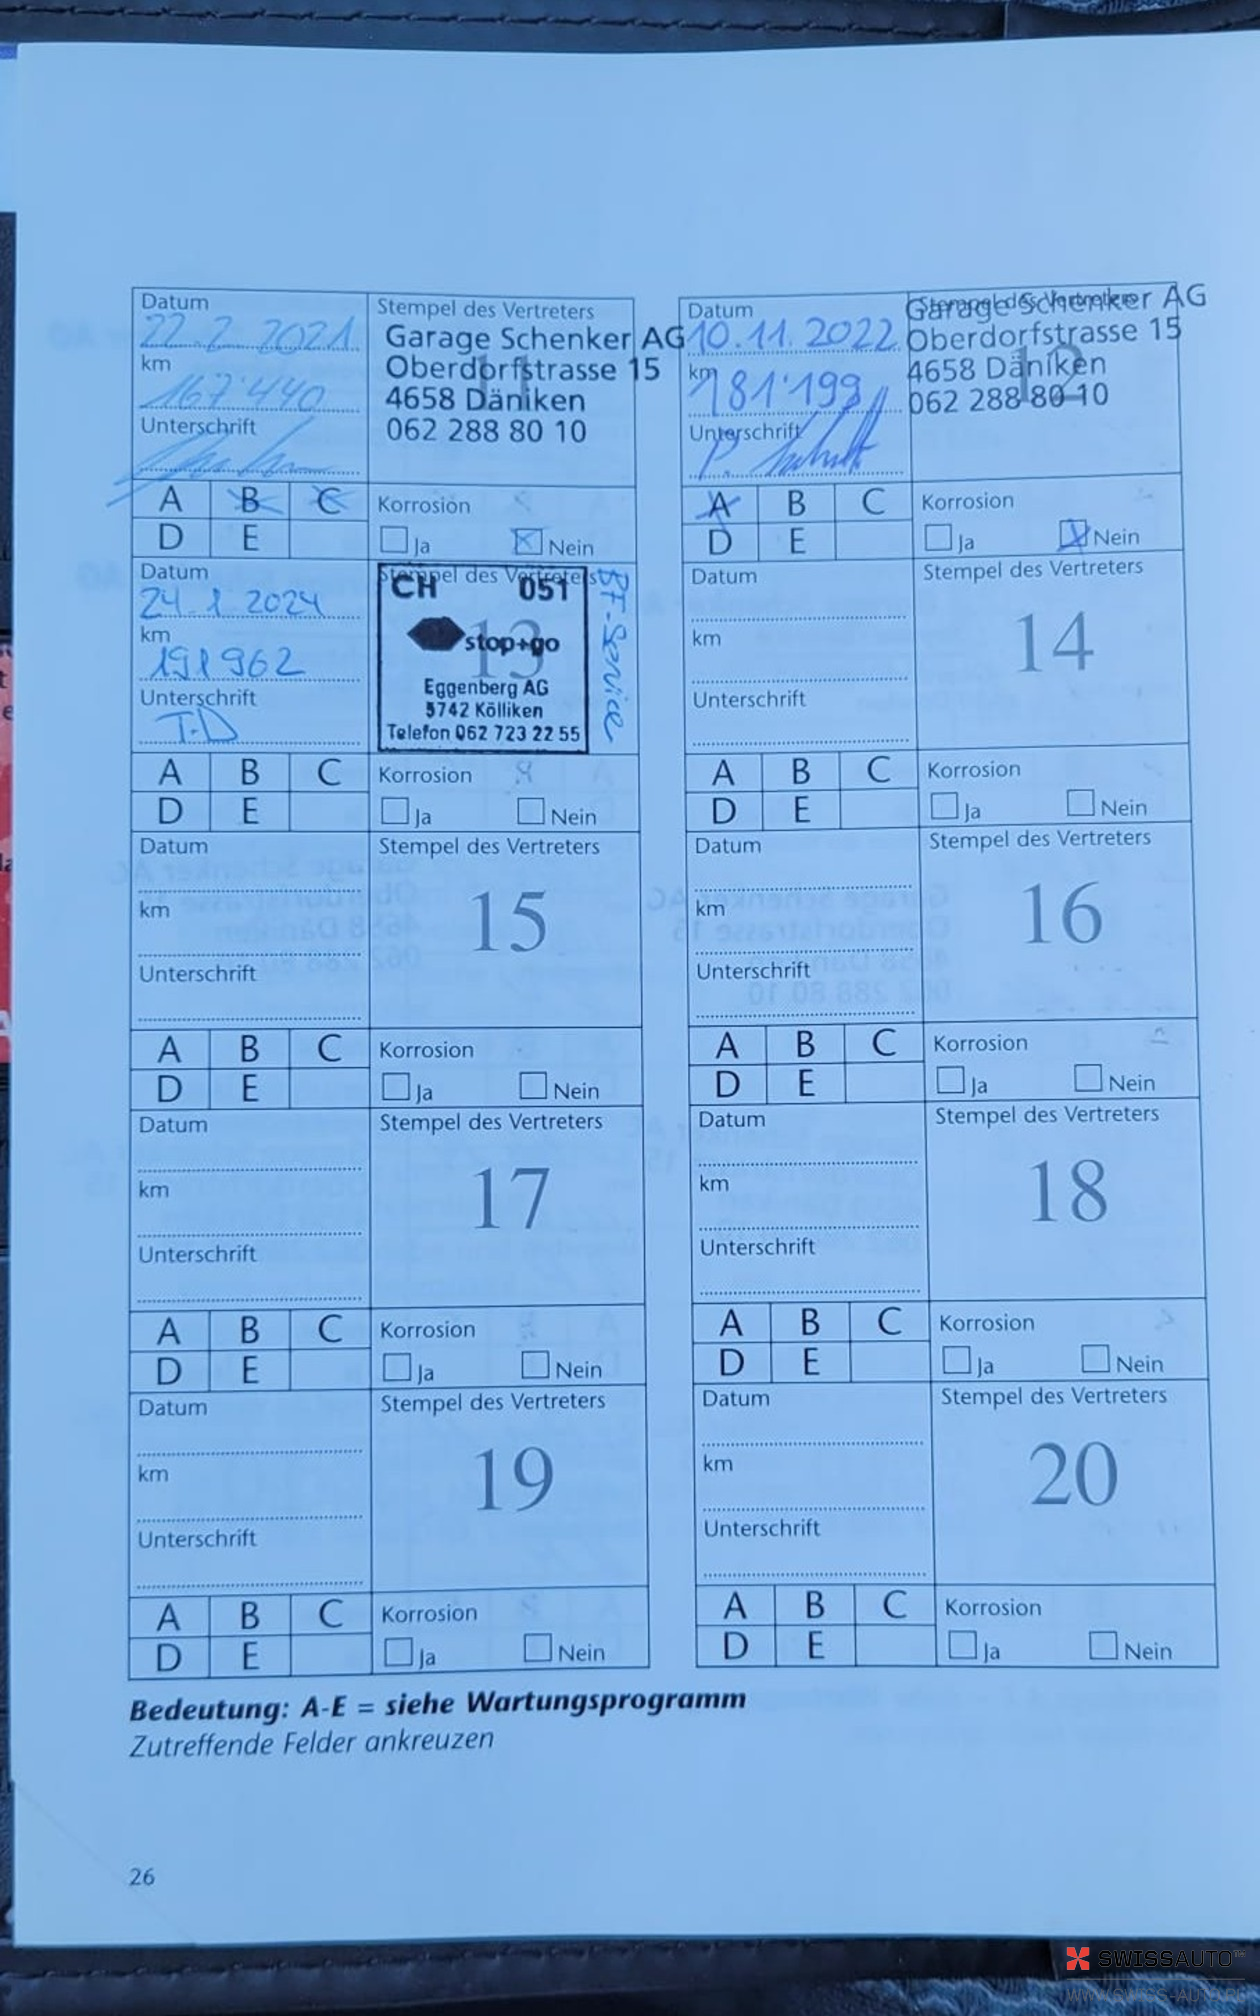 Datum
22.2.2021
km
167'440
Unterschrift
Stempel des Vertreters
Garage Schenker AG
Oberdorfstrasse 15
4658 Däniken
062 288 80 10
11
A B C
D E
Korrosion
Ja Nein
Datum
10.11.2022
km
181'199
Unterschrift
Stempel des Vertreters
Garage Schenker AG
Oberdorfstrasse 15
4658 Däniken
062 288 80 10
12
A B C
D E
Korrosion
Ja Nein
Datum
24.1.2024
km
191962
Unterschrift
T.D
Stempel des Vertreters
CH 051
stop+go
13
Eggenberg AG
5742 Kölliken
Telefon 062 723 22 55
A B C
D E
Korrosion
Ja Nein
Datum
km
Unterschrift
Stempel des Vertreters
14
A B C
D E
Korrosion
Ja Nein
Datum
km
Unterschrift
Stempel des Vertreters
15
A B C
D E
Korrosion
Ja Nein
Datum
km
Unterschrift
Stempel des Vertreters
16
A B C
D E
Korrosion
Ja Nein
Datum
km
Unterschrift
Stempel des Vertreters
17
A B C
D E
Korrosion
Ja Nein
Datum
km
Unterschrift
Stempel des Vertreters
18
A B C
D E
Korrosion
Ja Nein
Datum
km
Unterschrift
Stempel des Vertreters
19
A B C
D E
Korrosion
Ja Nein
Datum
km
Unterschrift
Stempel des Vertreters
20
A B C
D E
Korrosion
Ja Nein
Bedeutung: A-E = siehe Wartungsprogramm
Zutreffende Felder ankreuzen
26
SWISSAUTO